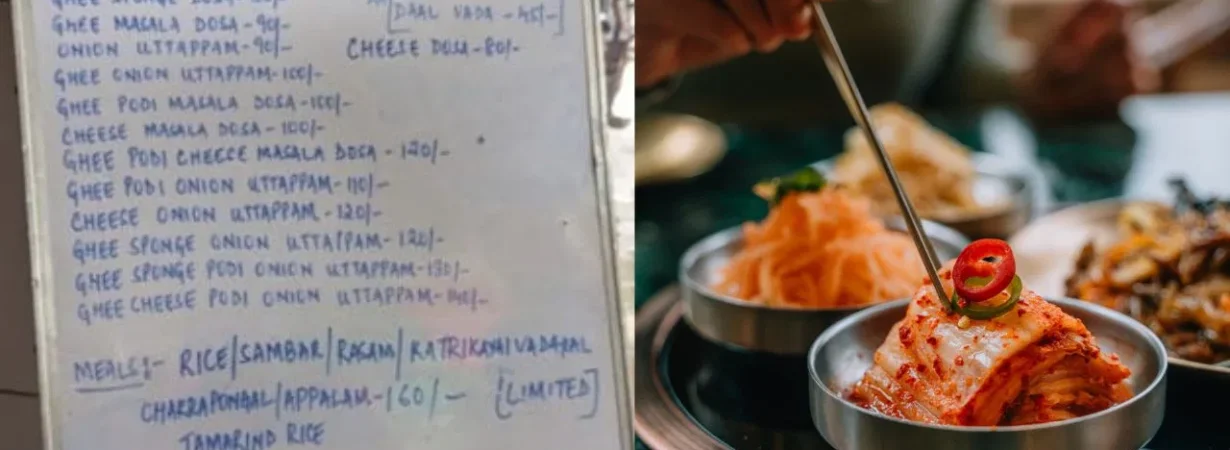 GHEE SPONGE DOSA
GHEE MASALA DOSA-90/-
[DAAL VADA-45/-]
ONION UTTAPPAM-90/-
CHEESE DOSA-80/-
GHEE ONION UTTAPPAM-100/-
GHEE PODI MASALA DOSA-100/-
CHEESE MASALA DOSA-100/-
GHEE PODI CHEECE MASALA DOSA-120/-
GHEE PODI ONION UTTAPPAM-110/-
CHEESE ONION UTTAPPAM-120/-
GHEE SPONGE ONION UTTAPPAM-120/-
GHEE SPONGE PODI ONION UTTAPPAM-130/-
GHEE CHEESE PODI ONION UTTAPPAM-140/-
MEALS:- RICE/SAMBAR/RASAM/KATRIKAYAIVADAYAL
CHAKRAPONGAL/APPALAM-160/- [LIMITED]
TAMARIND RICE